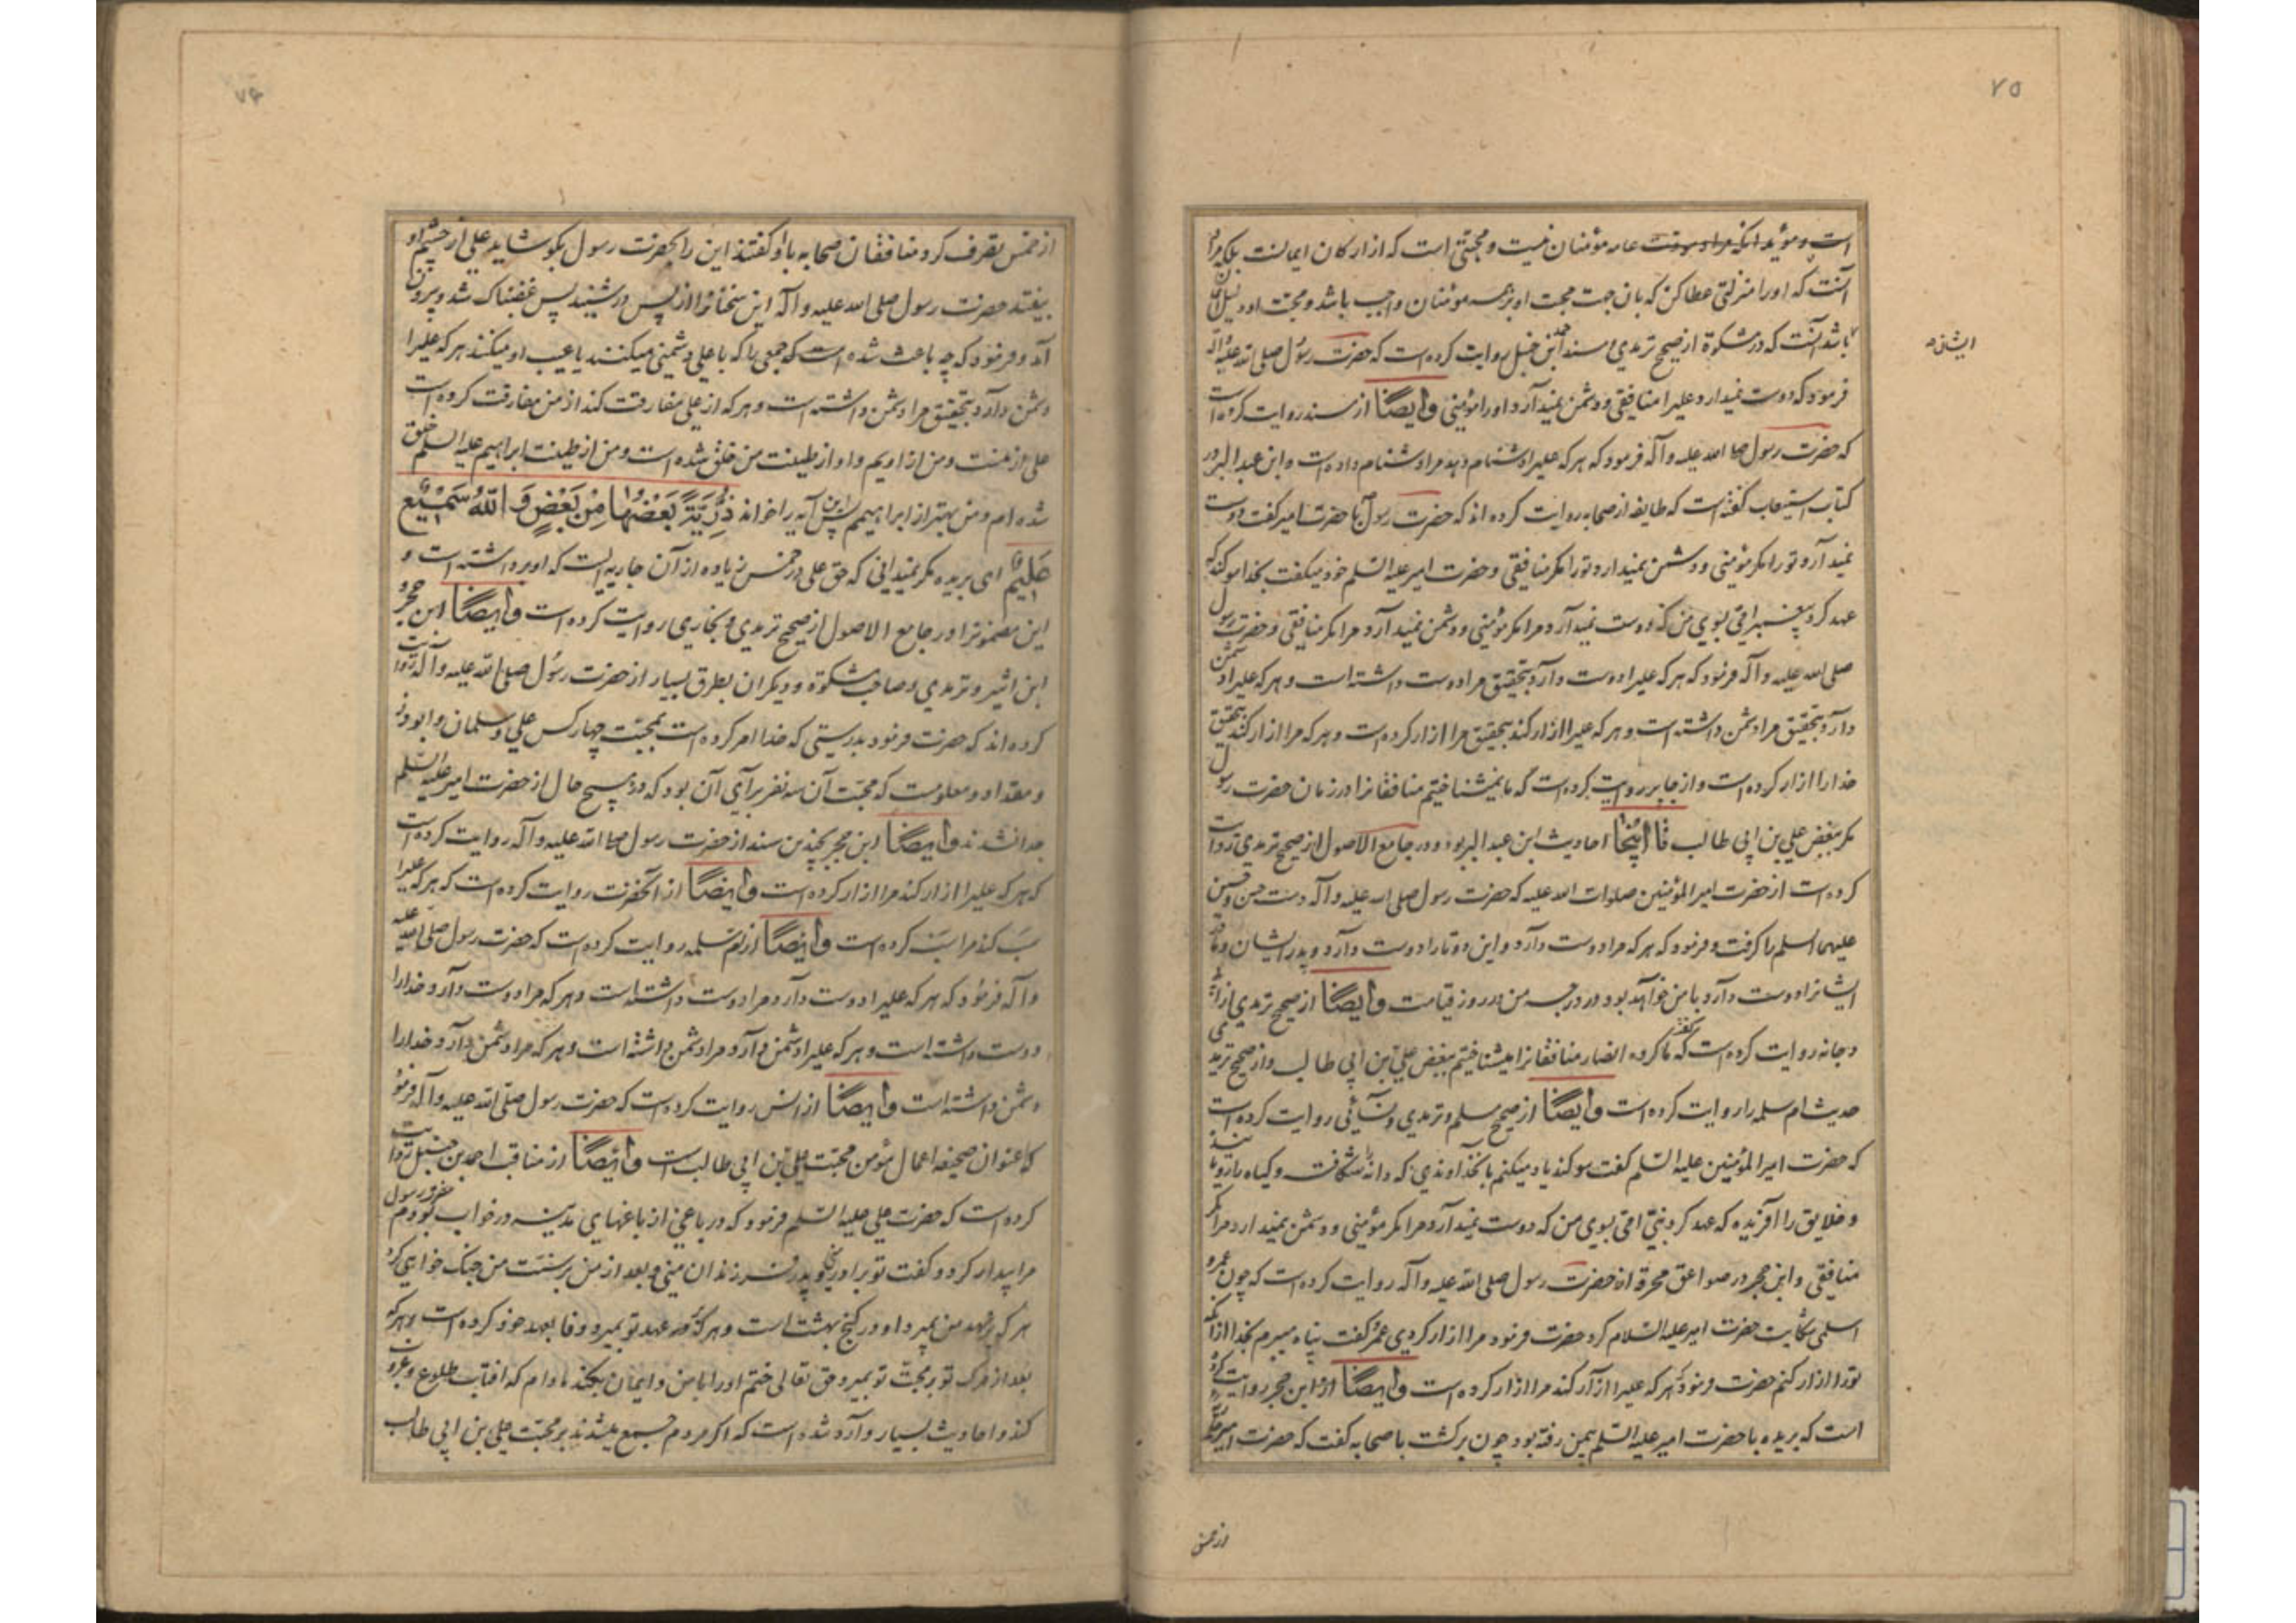 ۷۵
است و مؤید آنکه مراد مودت عامه مؤمنان نیست و محبتی است که از ارکان ایمانست بلکه مراد
آنست که او را منزلتی عطا کن که بان جهت محبت او بر همه مؤمنان واجب باشد و محبت او دلیل ایمان
ایشان
باشد آنست که در مشکوة از صحیح ترمدی و مسند احمد ابن حنبل روایت کرده است که حضرت رسول صلی الله علیه و آله
فرمود که دوست نمیدارد علیرا منافقی و دشمن نمیدآرد او را مؤمنی وایضًا از مسند روایت کرده است
که حضرت رسول صلی الله علیه و آله فرمود که هر که علیرا دشنام دهد مرا دشنام داده است و ابن عبد البر در
کتاب استیعاب گفته است که طایفه از صحابه روایت کرده اند که حضرت رسول با حضرت امیر گفت دوست
نمیدآرد تو را مگر مؤمنی و دشمن نمیدارد تو را مگر منافقی و حضرت امیر علیه السّلم خود میگفت بخدا سوگند که
عهد کرد پیغمبر امّی بسوی من که دوست نمیدآرد مرا مگر مؤمنی و دشمن نمیدآرد مرا مگر منافقی و حضرت رسول
صلی الله علیه و آله فرمود که هر که علیرا دوست دآرد بتحقیق مرا دوست داشته است و هر که علیرا دشمن
دآرد بتحقیق مرا دشمن داشته است و هر که علیرا ازار کند بتحقیق مرا ازار کرده است و هر که مرا ازار کند بتحقیق
خدا را ازار کرده است و از جابر روایت کرده است که ما نمیشناختیم منافقانرا در زمان حضرت رسول
مگر ببغض علی بن ابی طالب تا اینجا احادیث ابن عبد البر بود و در جامع الاصول از صحیح ترمدی روایت
کرده است از حضرت امیر المؤمنین صلوات الله علیه که حضرت رسول صلی الله علیه و آله دست حسن و حسین
علیهما السلم را گرفت و فرمود که هر که مرا دوست دآرد و این دو تا را دوست دآرد و پدر ایشان و مادر
ایشانرا دوست دآرد با من خواهد بود در درجه من در روز قیامت وایضًا از صحیح ترمدی از
دجانه روایت کرده است که گفت ما گروه انصار منافقانرا میشناختیم ببغض علی بن ابی طالب و از صحیح ترمدی
حدیث ام سلمه را روایت کرده است وایضًا از صحیح مسلم و ترمدی و نسآئی روایت کرده است
که حضرت امیر المؤمنین علیه السّلم گفت سوگند یاد میکنم بآن خداوندی که دانه را شکافت و گیاه را رویانید
و خلایق را آفریده که عهد کرد نبیّ امّی بسوی من که دوست نمیدآرد مرا مگر مؤمنی و دشمن نمیدارد مرا مگر
منافقی و ابن حجر در صواعق محرقه از حضرت رسول صلی الله علیه و آله روایت کرده است که چون عمرو
اسلمی شکایت حضرت امیر علیه السّلام کرد حضرت فرمود مرا ازار کردی عمرو گفت پناه میبرم بخدا از آنکه
تو را ازار کنم حضرت فرمود هر که علیرا ازآر کند مرا ازار کرده است وایضًا از ابن حجر روایت کرده
است که بریده با حضرت امیر علیه السّلم بیمن رفته بود چون برگشت با صحابه گفت که حضرت امیر
از خمس
۷۶
از خمس تصرف کرد منافقان صحابه با او گفتند این را بحضرت رسول بگو شاید علی از چشم او
بیفتد حضرت رسول صلی الله علیه و آله این سخنانرا از پس در شنید پس غضبناک شد و بیرون
آمد و فرمود که چه باعث شده است که جمعی را که با علی دشمنی میکنند یا عیب او میکنند هر که علیرا
دشمن دآرد بتحقیق مرا دشمن داشته است و هر که از علی مفارقت کند از من مفارقت کرده است
علی از منست و من از اویم و او از طینت من خلق شده است و من از طینت ابراهیم علیه السلم خلق
شده ام و من بهتر از ابراهیمم پس این آیه را خواند ذُرِّیَّةً بَعْضُهَا مِنْ بَعْضٍ وَاللّٰهُ سَمِیْعٌ
عَلِیْمٌ ای بریده مگر نمیدانی که حق علی در خمس زیاده از آن جاریه است که او برداشته است و
این مضمونرا در جامع الاصول از صحیح ترمدی و بخاری روایت کرده است وایضًا ابن حجر و
ابن اثیر و ترمدی و صاحب مشکوة و دیگران بطرق بسیار از حضرت رسول صلی الله علیه و آله روایت
کرده اند که حضرت فرمود بدرستی که خدا امر کرده است بمحبّت چهار کس علی و سلمان و ابوذر
و مقداد و معلومست که محبّت آن سه نفر برآی آن بود که در هیچ حال از حضرت امیر علیه السّلم
جدا نشدند وایضًا ابن حجر بچندین سند از حضرت رسول صلی الله علیه و آله روایت کرده است
که هر که علیرا ازار کند مرا ازار کرده است وایضًا از آنحضرت روایت کرده است که هر که علیرا
سَبّ کند مرا سَبّ کرده است وایضًا از ام سلمه روایت کرده است که حضرت رسول صلی الله علیه
و آله فرمود که هر که علیرا دوست دآرد مرا دوست داشته است و هر که مرا دوست دآرد خدا را
دوست داشته است و هر که علیرا دشمن دآرد مرا دشمن داشته است و هر که مرا دشمن دآرد خدا را
دشمن داشته است وایضًا از انس روایت کرده است که حضرت رسول صلّی الله علیه و آله فرمود
که عنوان صحیفه اعمال مؤمن محبّت علی بن ابی طالب است وایضًا از مناقب احمد بن حنبل روایت
کرده است که حضرت علی علیه السّلم فرمود که در باغی از باغهای مدینه در خواب بودم حضرت رسول
مرا بیدار کرد و گفت تو برادر منی و پدر فرزندان منی و بعد از من بر سنّت من جنگ خواهی کرد
هر که بر عهد من بمیرد او در گنج بهشت است و هر که بر عهد تو بمیرد وفا بعهد خود کرده است و هر که
بعد از مرگ تو بر محبّت تو بمیرد حق تعالی ختم او را بامن و ایمان بکند مادام که افتاب طلوع و غروب
کند و احادیث بسیار وارد شده است که اگر مردم جمع میشدند بر محبّت علی بن ابی طالب